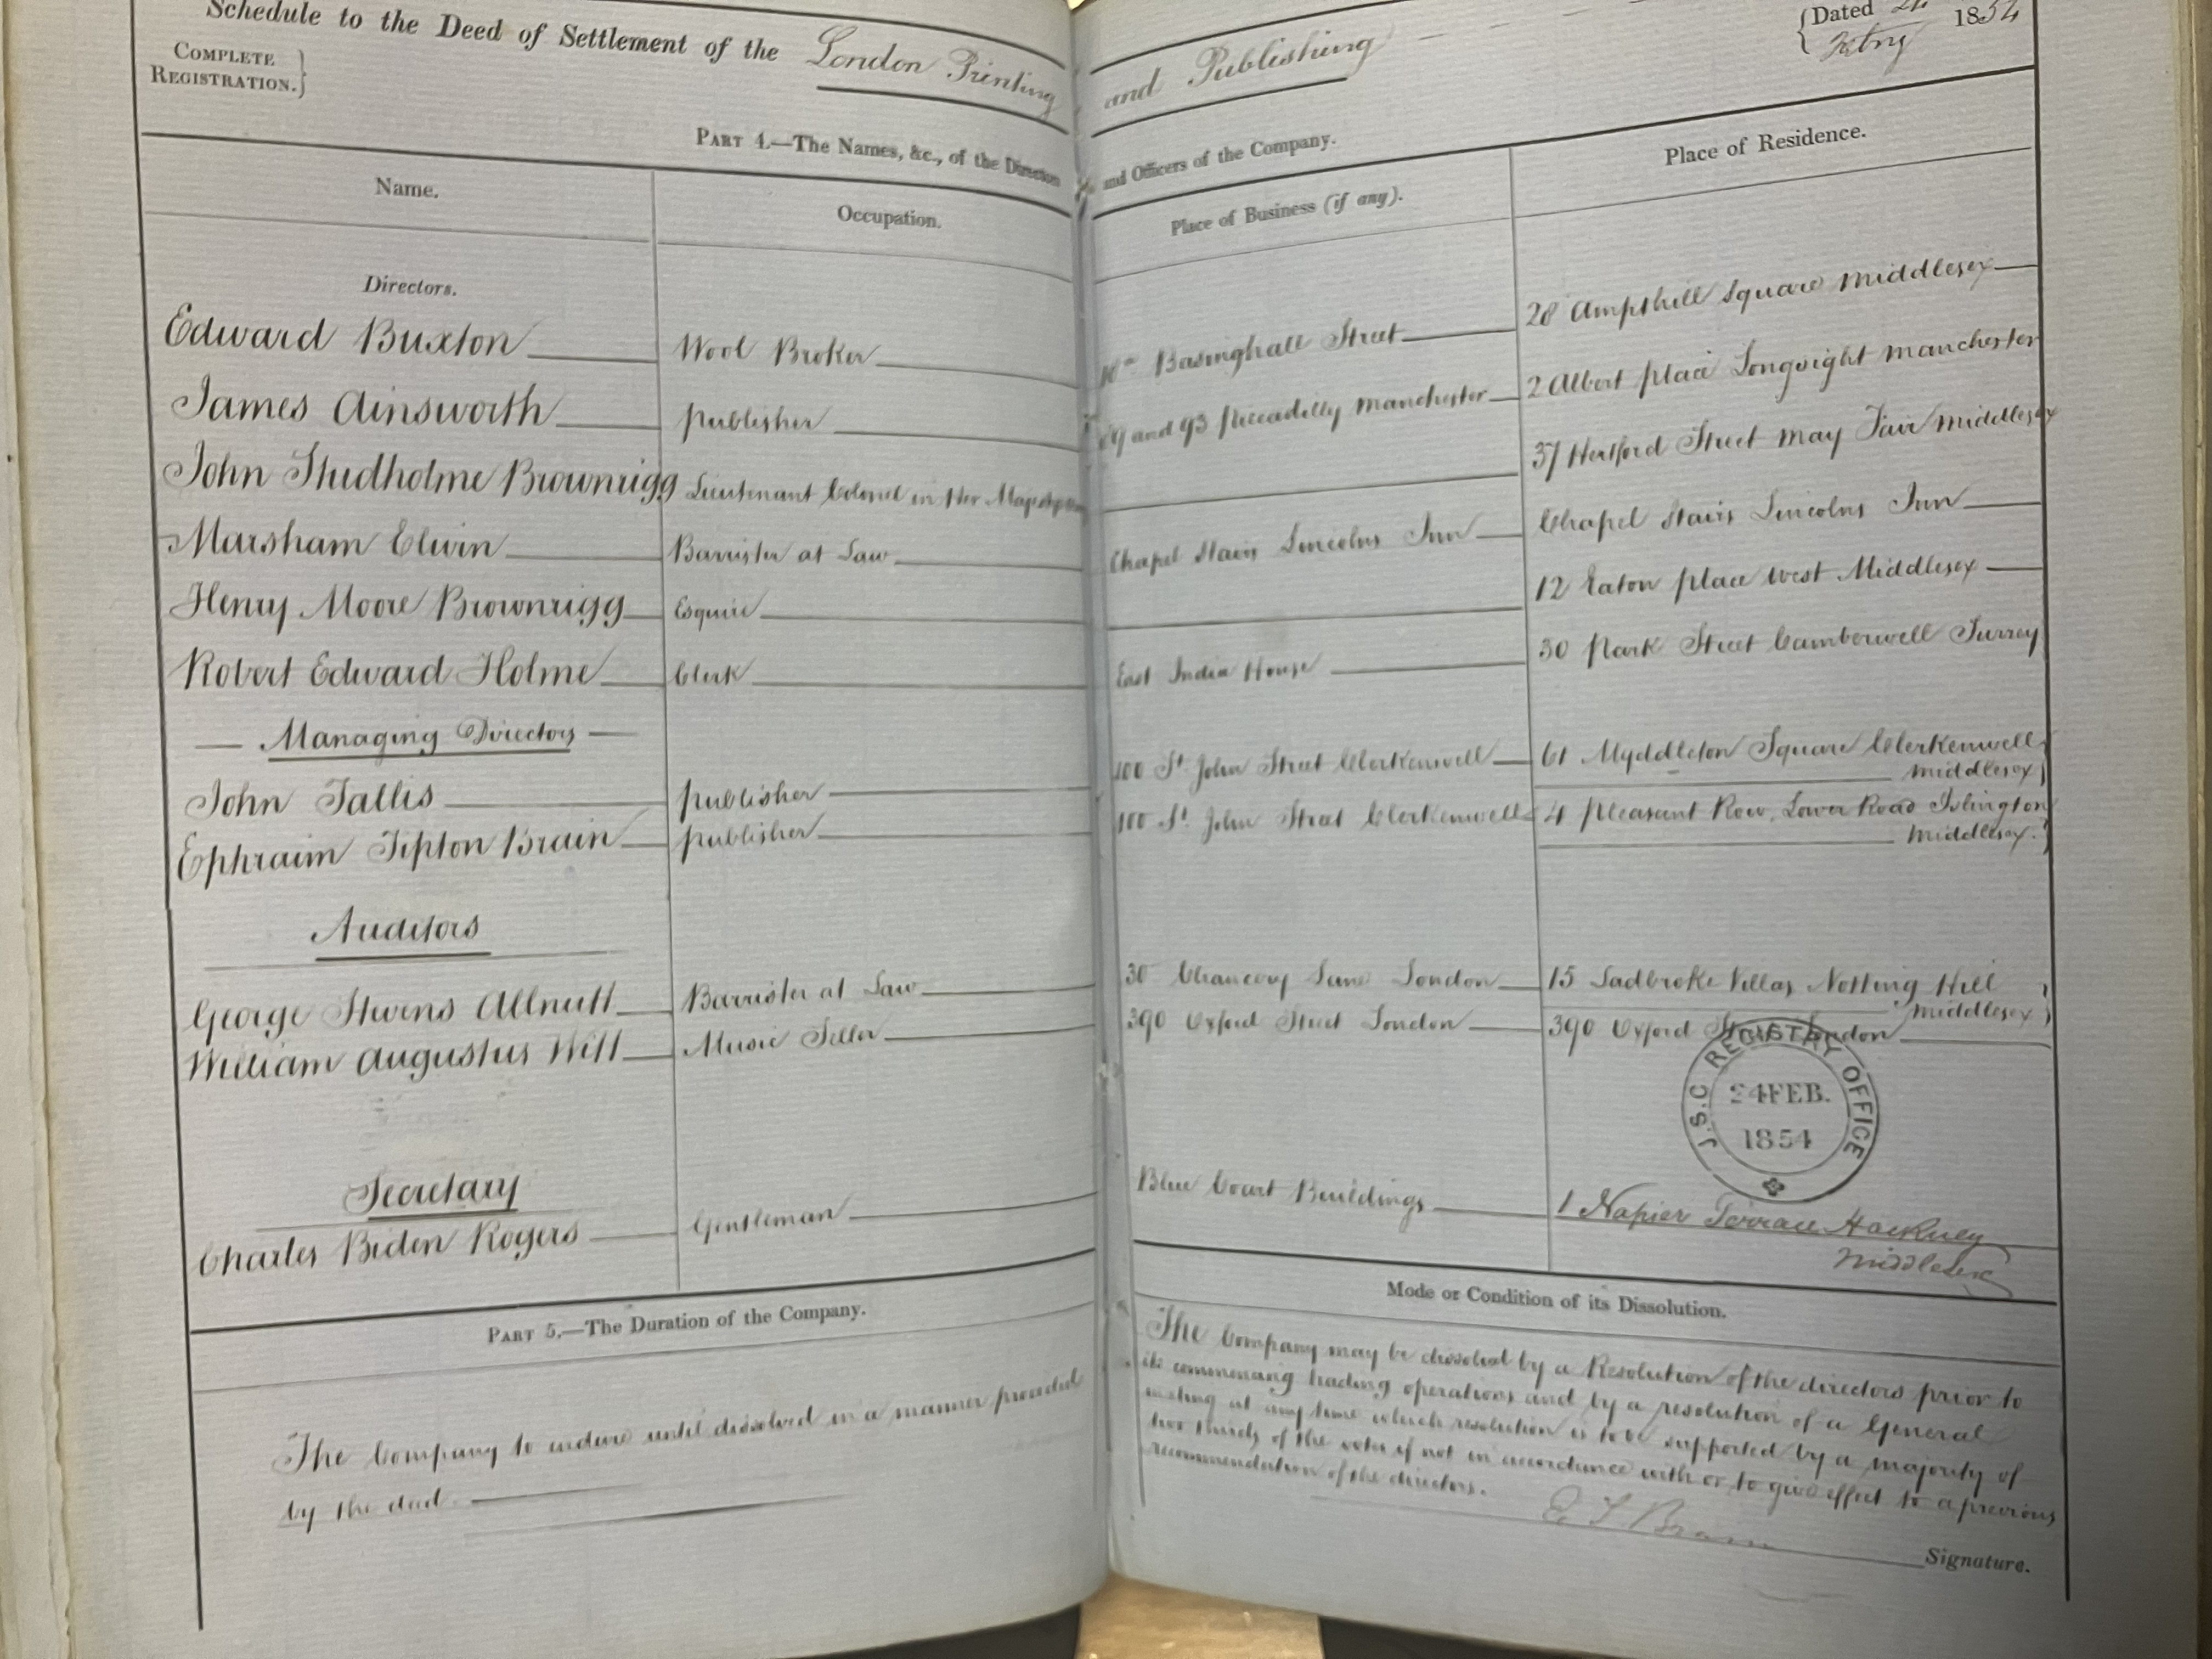 Schedule to the Deed of Settlement of the London Printing and Publishing
{Dated 24 Febry 1854
COMPLETE REGISTRATION.}
PART 4.—The Names, &c., of the Directors and Officers of the Company.
Name. Occupation. Place of Business (if any). Place of Residence.
Directors.
Edward Buxton Wool Broker Basinghall Street 28 Ampthill Square Middlesex
James Ainsworth publisher 89 and 93 Piccadilly Manchester 2 Albert place Longsight Manchester
John Studholme Brownrigg Lieutenant Colonel in Her Majestys 37 Hertford Street May Fair Middlesex
Marsham Elwin Barrister at Law Chapel Stairs Lincolns Inn Chapel Stairs Lincolns Inn
Henry Moore Brownrigg Esquire 12 Eaton place West Middlesex
Robert Edward Holme Clerk East India House 30 Park Street Camberwell Surrey
— Managing Directors —
John Tallis publisher 100 St. John Street Clerkenwell 61 Myddleton Square Clerkenwell Middlesex}
Ephraim Tipton Brain publisher 100 St. John Street Clerkenwell 4 Pleasant Row, Lower Road Islington Middlesex.}
Auditors
George Stevens Allnutt Barrister at Law 30 Chancery Lane London 15 Ladbroke Villas Notting Hill Middlesex}
William Augustus Witt Music Seller 390 Oxford Street London 390 Oxford Street London
J.S.C REGISTRY OFFICE
24 FEB.
1854
Secretary
Charles Biden Rogers Gentleman Blue Court Buildings 1 Napier Terrace Hackney Middlesex
PART 5.—The Duration of the Company.
The Company to endure until dissolved in a manner provided
by the deed.
Mode or Condition of its Dissolution.
The Company may be dissolved by a Resolution of the directors prior to
its commencing trading operations and by a resolution of a General
meeting at any time which resolution is to be supported by a majority of
two thirds of the votes if not in accordance with or to give effect to a previous
recommendation of the directors.
E T Brain
Signature.